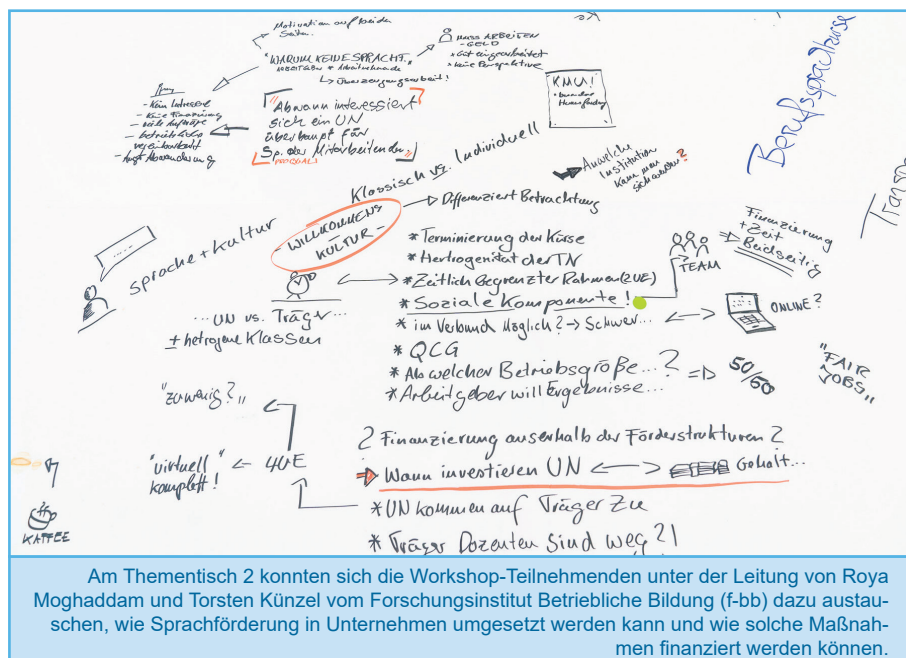 Motivation auf beiden
Seiten.
"WARUM KEINE SPRACHF."
ARBEITGEBER * Arbeitnehmende
↳ Überzeugungsarbeit!
MUSS ARBEITEN
- GELD
* Gut eingearbeitet
* keine Perspektive
- Kein Interesse
- keine Finanzierung
- viele Aufträge
- betriebliche
Vereinbarkeit
- Angst Abwanderung
"Ab wann interessiert
sich ein UN
überhaupt für
Sp. der Mitarbeitenden"
KMU!
Berufssprachkurse
Klassisch vs. Individuell
An welche
Institution
kann man
sich wenden?
WILLKOMMENS
KULTUR -
→ Differenziert Betrachtung
sprache + Kultur
* Terminierung der Kurse
* Hertrogenität der TN
* Zeitlich Begrenzter Rahmen (2UE)
* Soziale Komponente!
* im Verbund Möglich? → Schwer...
* QCG
* Ab welcher Betriebsgröße...?
* Arbeitgeber will Ergebnisse...
TEAM
Finanzierung
+ Zeit
Beidseitig
ONLINE?
50/50
"FAIR
JOBS"
... UN vs. Träger...
± hetrogene Klassen
"zu wenig?"
"virtuell" ← 4UE
komplett!
KAFFEE
? Finanzierung auserhalb der Förderstrukturen ?
Wann investieren UN ↔ Gehalt...
* UN kommen auf Träger zu
* Träger Dozenten sind weg?!
Am Thementisch 2 konnten sich die Workshop-Teilnehmenden unter der Leitung von Roya
Moghaddam und Torsten Künzel vom Forschungsinstitut Betriebliche Bildung (f-bb) dazu austau-
schen, wie Sprachförderung in Unternehmen umgesetzt werden kann und wie solche Maßnah-
men finanziert werden können.